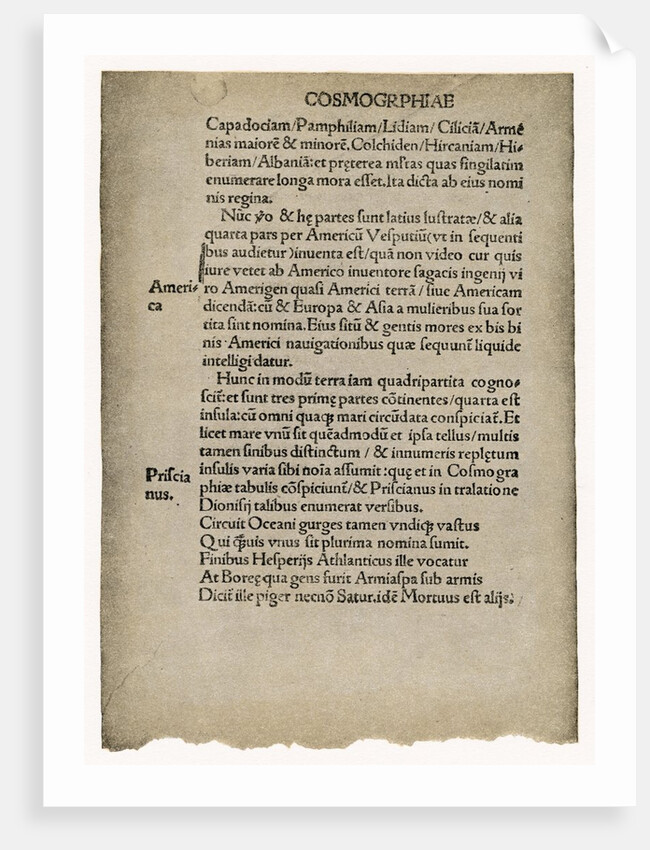 COSMOGRPHIAE
Capadociam/Pamphiliam/Lidiam/Ciliciā/Armē
nias maiorē & minorē.Colchiden/Hircaniam/Hi⸗
beriam/Albaniā:et pręterea mĺtas quas singilatim
enumerare longa mora esset.Ita dicta ab eius nomi
nis regina.
Nūc ꝟo & hę partes sunt latius lustratæ/& alia
quarta pars per Americū Vesputiū(vt in sequenti
bus audietur)inuenta est/quā non video cur quis
iure vetet ab Americo inuentore sagacis ingenij vi
Ameri⸗
ca
ro Amerigen quasi Americi terrā/siue Americam
dicendā:cū & Europa & Asia a mulieribus sua sor
tita sint nomina.Eius sitū & gentis mores ex bis bi
nis Americi nauigationibus quæ sequunt liquide
intelligi datur.
Hunc in modū terra iam quadripartita cogno⸗
scit:et sunt tres primę partes cōtinentes/quarta est
insula:cū omni quaqꝫ mari circūdata conspiciat.Et
licet mare vnū sit quēadmodū et ipsa tellus/multis
tamen sinibus distinctum/& innumeris repletum
Priscia
nus.
insulis varia sibi noīa assumit:quę et in Cosmogra
phiæ tabulis cōspiciunt/& Priscianus in tralatione
Dionisij talibus enumerat versibus.
Circuit Oceani gurges tamen vndiqꝫ vastus
Qui ꝗ̄uis vnus sit plurima nomina sumit.
Finibus Hesperijs Athlanticus ille vocatur
At Boreę qua gens furit Armiaspa sub armis
Dicit ille piger necnō Satur.idē Mortuus est alijs,